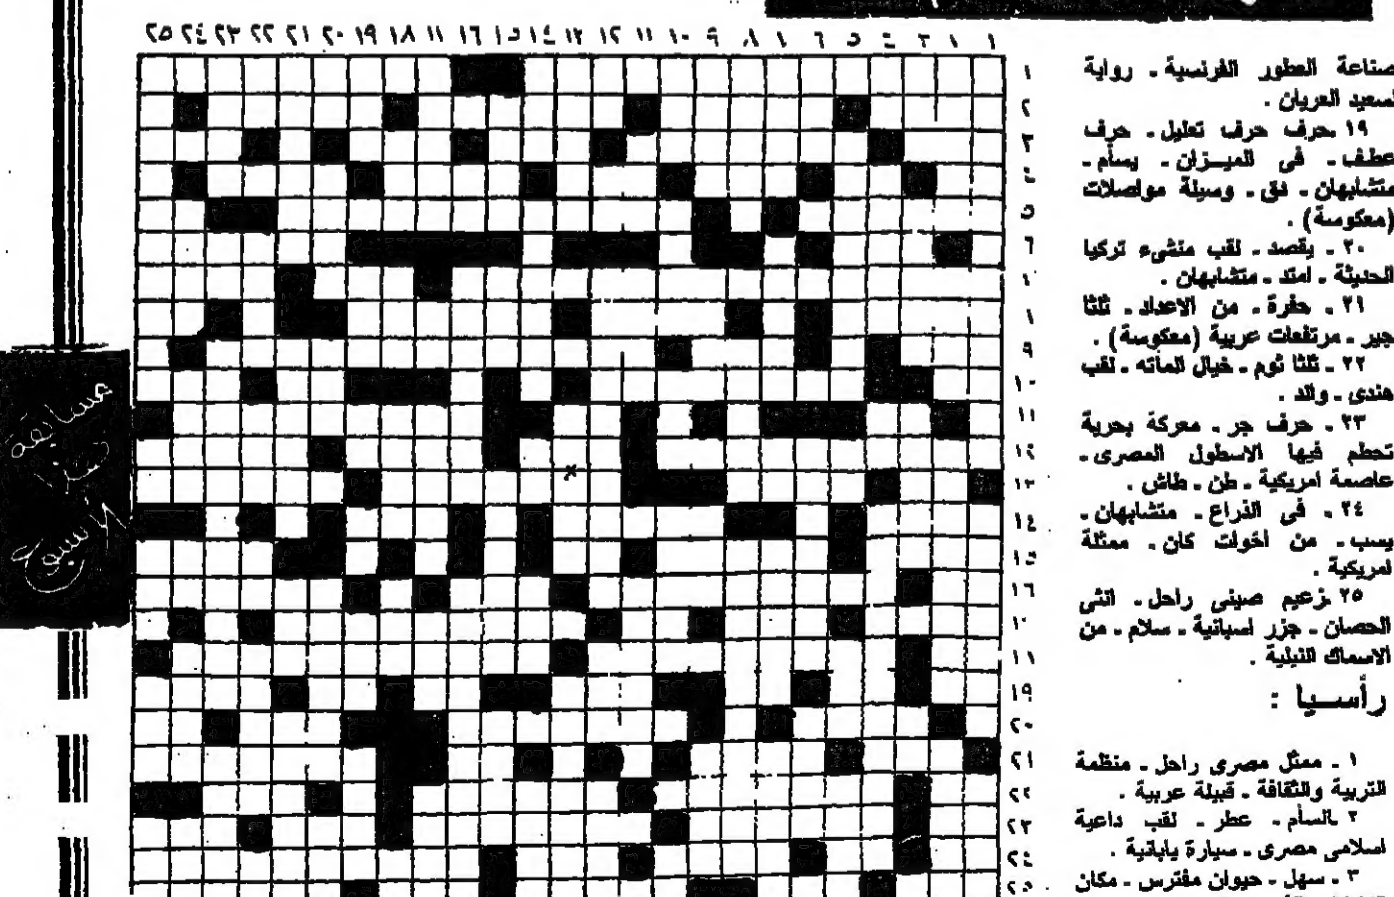 ٢٥ ٢٤ ٢٣ ٢٢ ٢١ ٢٠ ١٩ ١٨ ١١ ١٦ ١٥ ١٤ ١٣ ١٢ ١١ ١٠ ٩ ٨ ١ ٦ ٥ ٤ ٣ ١ ١
صناعة العطور الفرنسية ـ رواية
لسعيد العريان .
١٩ ـ حرف حرف تعليل ـ حرف
عطف ـ فى الميـزان ـ يسأم ـ
متشابهان ـ دق ـ وسيلة مواصلات
(معكوسة) .
٢٠ ـ يقصد ـ لقب منشىء تركيا
الحديثة ـ امتد ـ متشابهان .
٢١ ـ حفرة ـ من الاعداد ـ ثلثا
جير ـ مرتفعات عربية (معكوسة) .
٢٢ ـ ثلثا ثوم ـ خيال المآته ـ لقب
هندى ـ والد .
٢٣ ـ حرف جر ـ معركة بحرية
تحطم فيها الاسطول المصرى ـ
عاصمة امريكية ـ طن ـ طاش .
٢٤ ـ فى الذراع ـ متشابهان ـ
يسب ـ من اخوات كان ـ ممثلة
امريكية .
٢٥ ـ زعيم صينى راحل ـ انثى
الحصان ـ جزر اسبانية ـ سلام ـ من
الاسماك النيلية .
رأسـيا :
١ ـ ممثل مصرى راحل ـ منظمة
التربية والثقافة ـ قبيلة عربية .
٢ ـ السأم ـ عطر ـ لقب داعية
اسلامى مصرى ـ سيارة يابانية .
٣ ـ سهل ـ حيوان مفترس ـ مكان
١
٢
٣
٤
٥
٦
١
١
٩
١٠
١١
١٢
١٣
١٤
١٥
١٦
١٠
١١
١٩
٢٠
٢١
٢٢
٢٣
٢٤
٢٥
مسابقة
هذا
الأسبوع